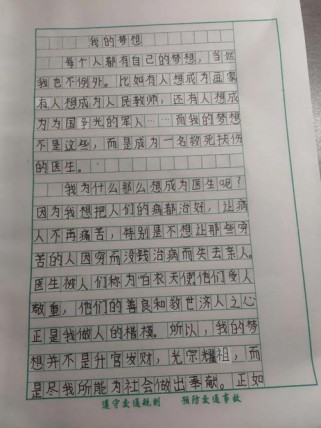 我的梦想
每个人都有自己的梦想，当然
我也不例外。比如有人想成为画家
有人想成为人民教师，还有人想成
为为国争光的军人……而我的梦想
不是这些，而是成为一名救死扶伤
的医生。
我为什么那么想成为医生呢？
因为我想把人们的病都治好，让病
人不再痛苦，特别是不想让那些穷
苦的人因穷而没钱治病而失去亲人。
医生被人们称为"白衣天使"他们受人
敬重，他们的善良和救世济人之心
正是我做人的楷模。所以，我的梦
想并不是升官发财，光宗耀祖，而
是尽我所能为社会做出奉献。正如
遵守交通规则 预防交通事故